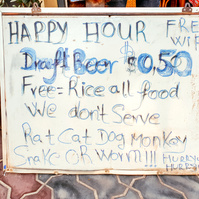 HAPPY HOUR FREE WIFI
Draft Beer $0,5¢
Free = Rice all food
We don't Serve
Rat Cat Dog Monkey
Snake Or Worm!!!
HURRY
HURRY